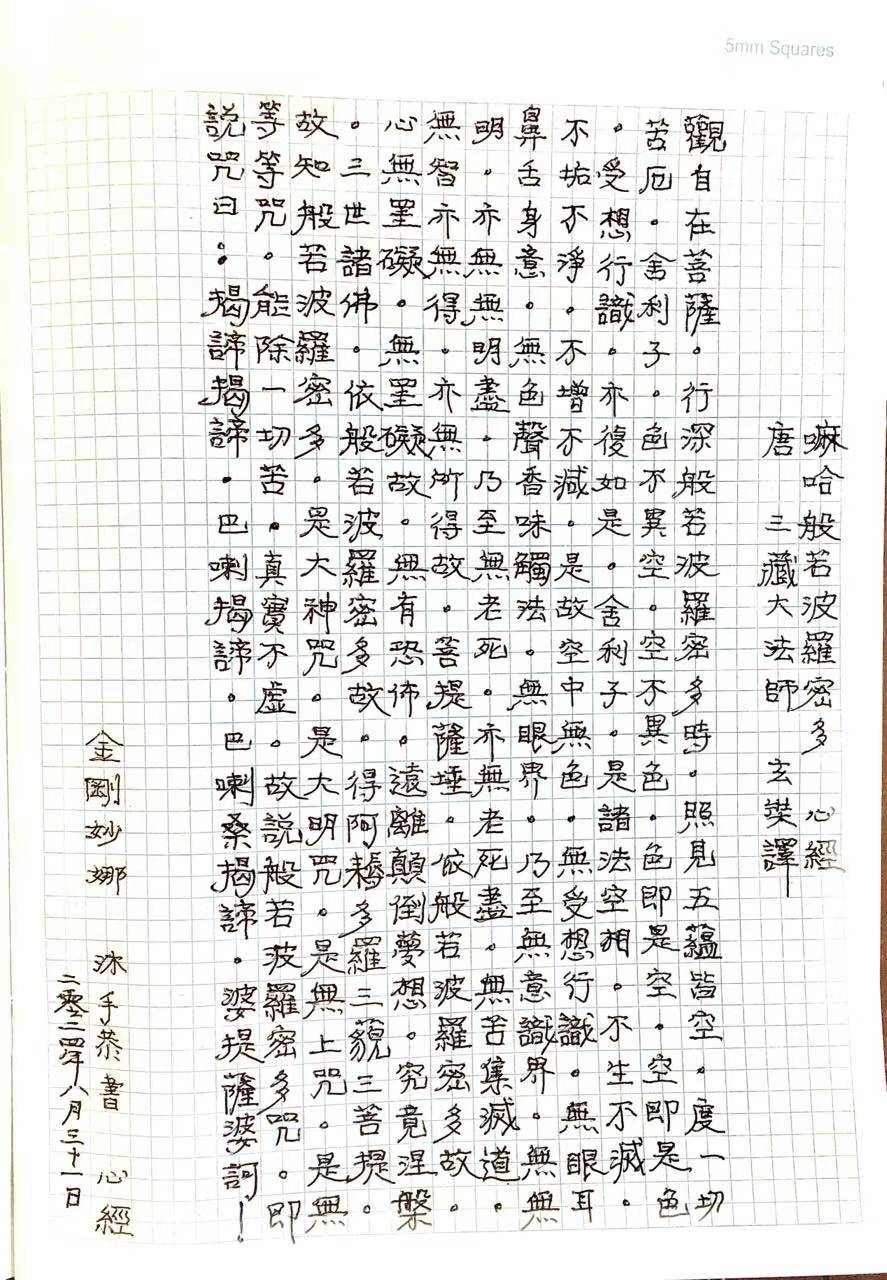 5mm Squares
嘛哈般若波羅密多 心經
唐 三藏大法師 玄奘譯
觀自在菩薩。行深般若波羅密多時。照見五蘊皆空。度一切
苦厄。舍利子。色不異空。空不異色。色即是空。空即是色
。受想行識。亦復如是。舍利子。是諸法空相。不生不滅。
不垢不淨。不增不減。是故空中無色。無受想行識。無眼耳
鼻舌身意。無色聲香味觸法。無眼界。乃至無意識界。無無
明。亦無無明盡。乃至無老死。亦無老死盡。無苦集滅道。
無智亦無得。亦無所得故。菩提薩埵。依般若波羅密多故。
心無罣礙。無罣礙故。無有恐佈。遠離顛倒夢想。究竟涅槃
。三世諸佛。依般若波羅密多故。得阿耨多羅三藐三菩提。
故知般若波羅密多。是大神咒。是大明咒。是無上咒。是無
等等咒。能除一切苦。真實不虛。故說般若波羅密多咒。即
說咒曰：揭諦揭諦。巴喇揭諦。巴喇桑揭諦。婆提薩婆訶！
金剛妙娜 沐手恭書 心經
二零二四年八月三十一日